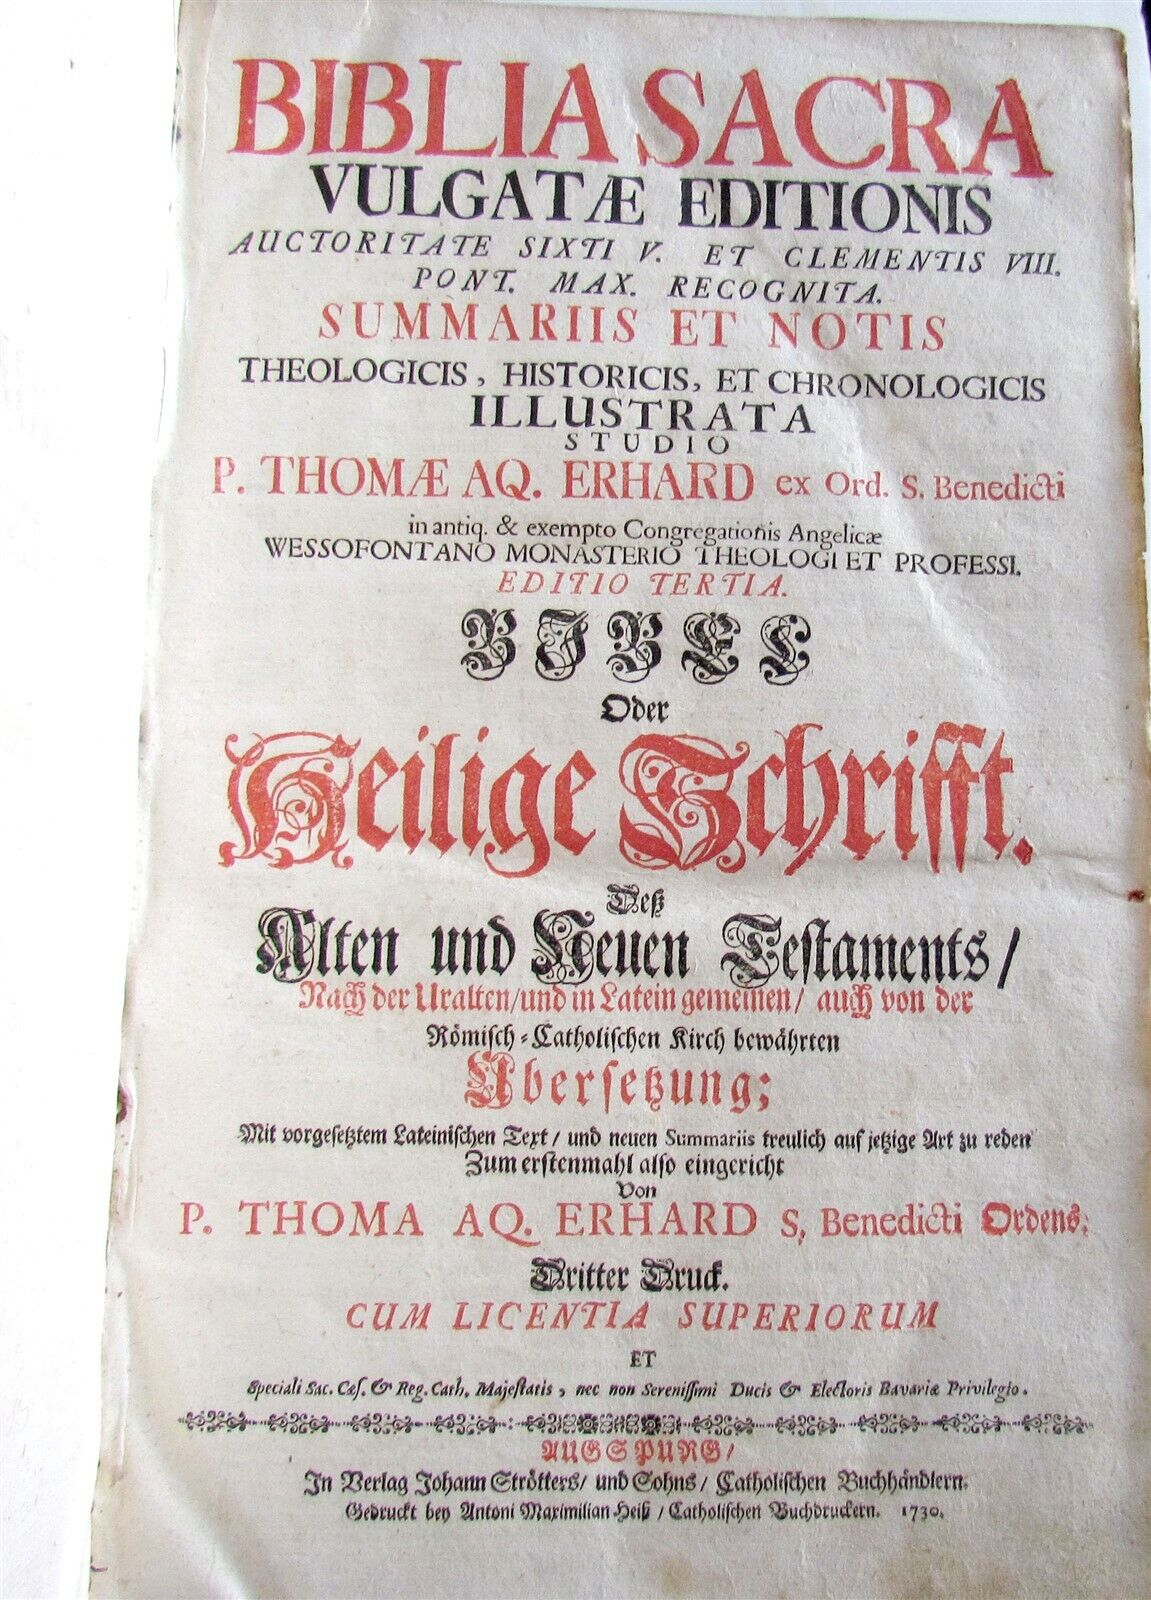 BIBLIA SACRA
VULGATÆ EDITIONIS
AUCTORITATE SIXTI V. ET CLEMENTIS VIII.
PONT. MAX. RECOGNITA.
SUMMARIIS ET NOTIS
THEOLOGICIS, HISTORICIS, ET CHRONOLOGICIS
ILLUSTRATA
STUDIO
P. THOMÆ AQ. ERHARD ex Ord. S. Benedicti
in antiq. & exempto Congregationis Angelicæ
WESSOFONTANO MONASTERIO THEOLOGI ET PROFESSI.
EDITIO TERTIA.
BIBEL
Oder
Heilige Schrifft.
Deß
Alten und Neuen Testaments/
Nach der Uralten/und in Latein gemeinen/ auch von der
Römisch-Catholischen Kirch bewährten
Ubersetzung;
Mit vorgesetztem Lateinischen Text/ und neuen Summariis treulich auf jetzige Art zu reden
Zum erstenmahl also eingericht
Von
P. THOMA AQ. ERHARD S, Benedicti Ordens,
Dritter Druck.
CUM LICENTIA SUPERIORUM
ET
Speciali Sac. Cæs. & Reg. Cath. Majestatis, nec non Serenissimi Ducis & Electoris Bavariæ Privilegio.
AUGSPURG/
In Verlag Johann Strötters/ und Sohns/ Catholischen Buchhändlern.
Gedruckt bey Antoni Maximilian Heiß/ Catholischen Buchdruckern. 1730.